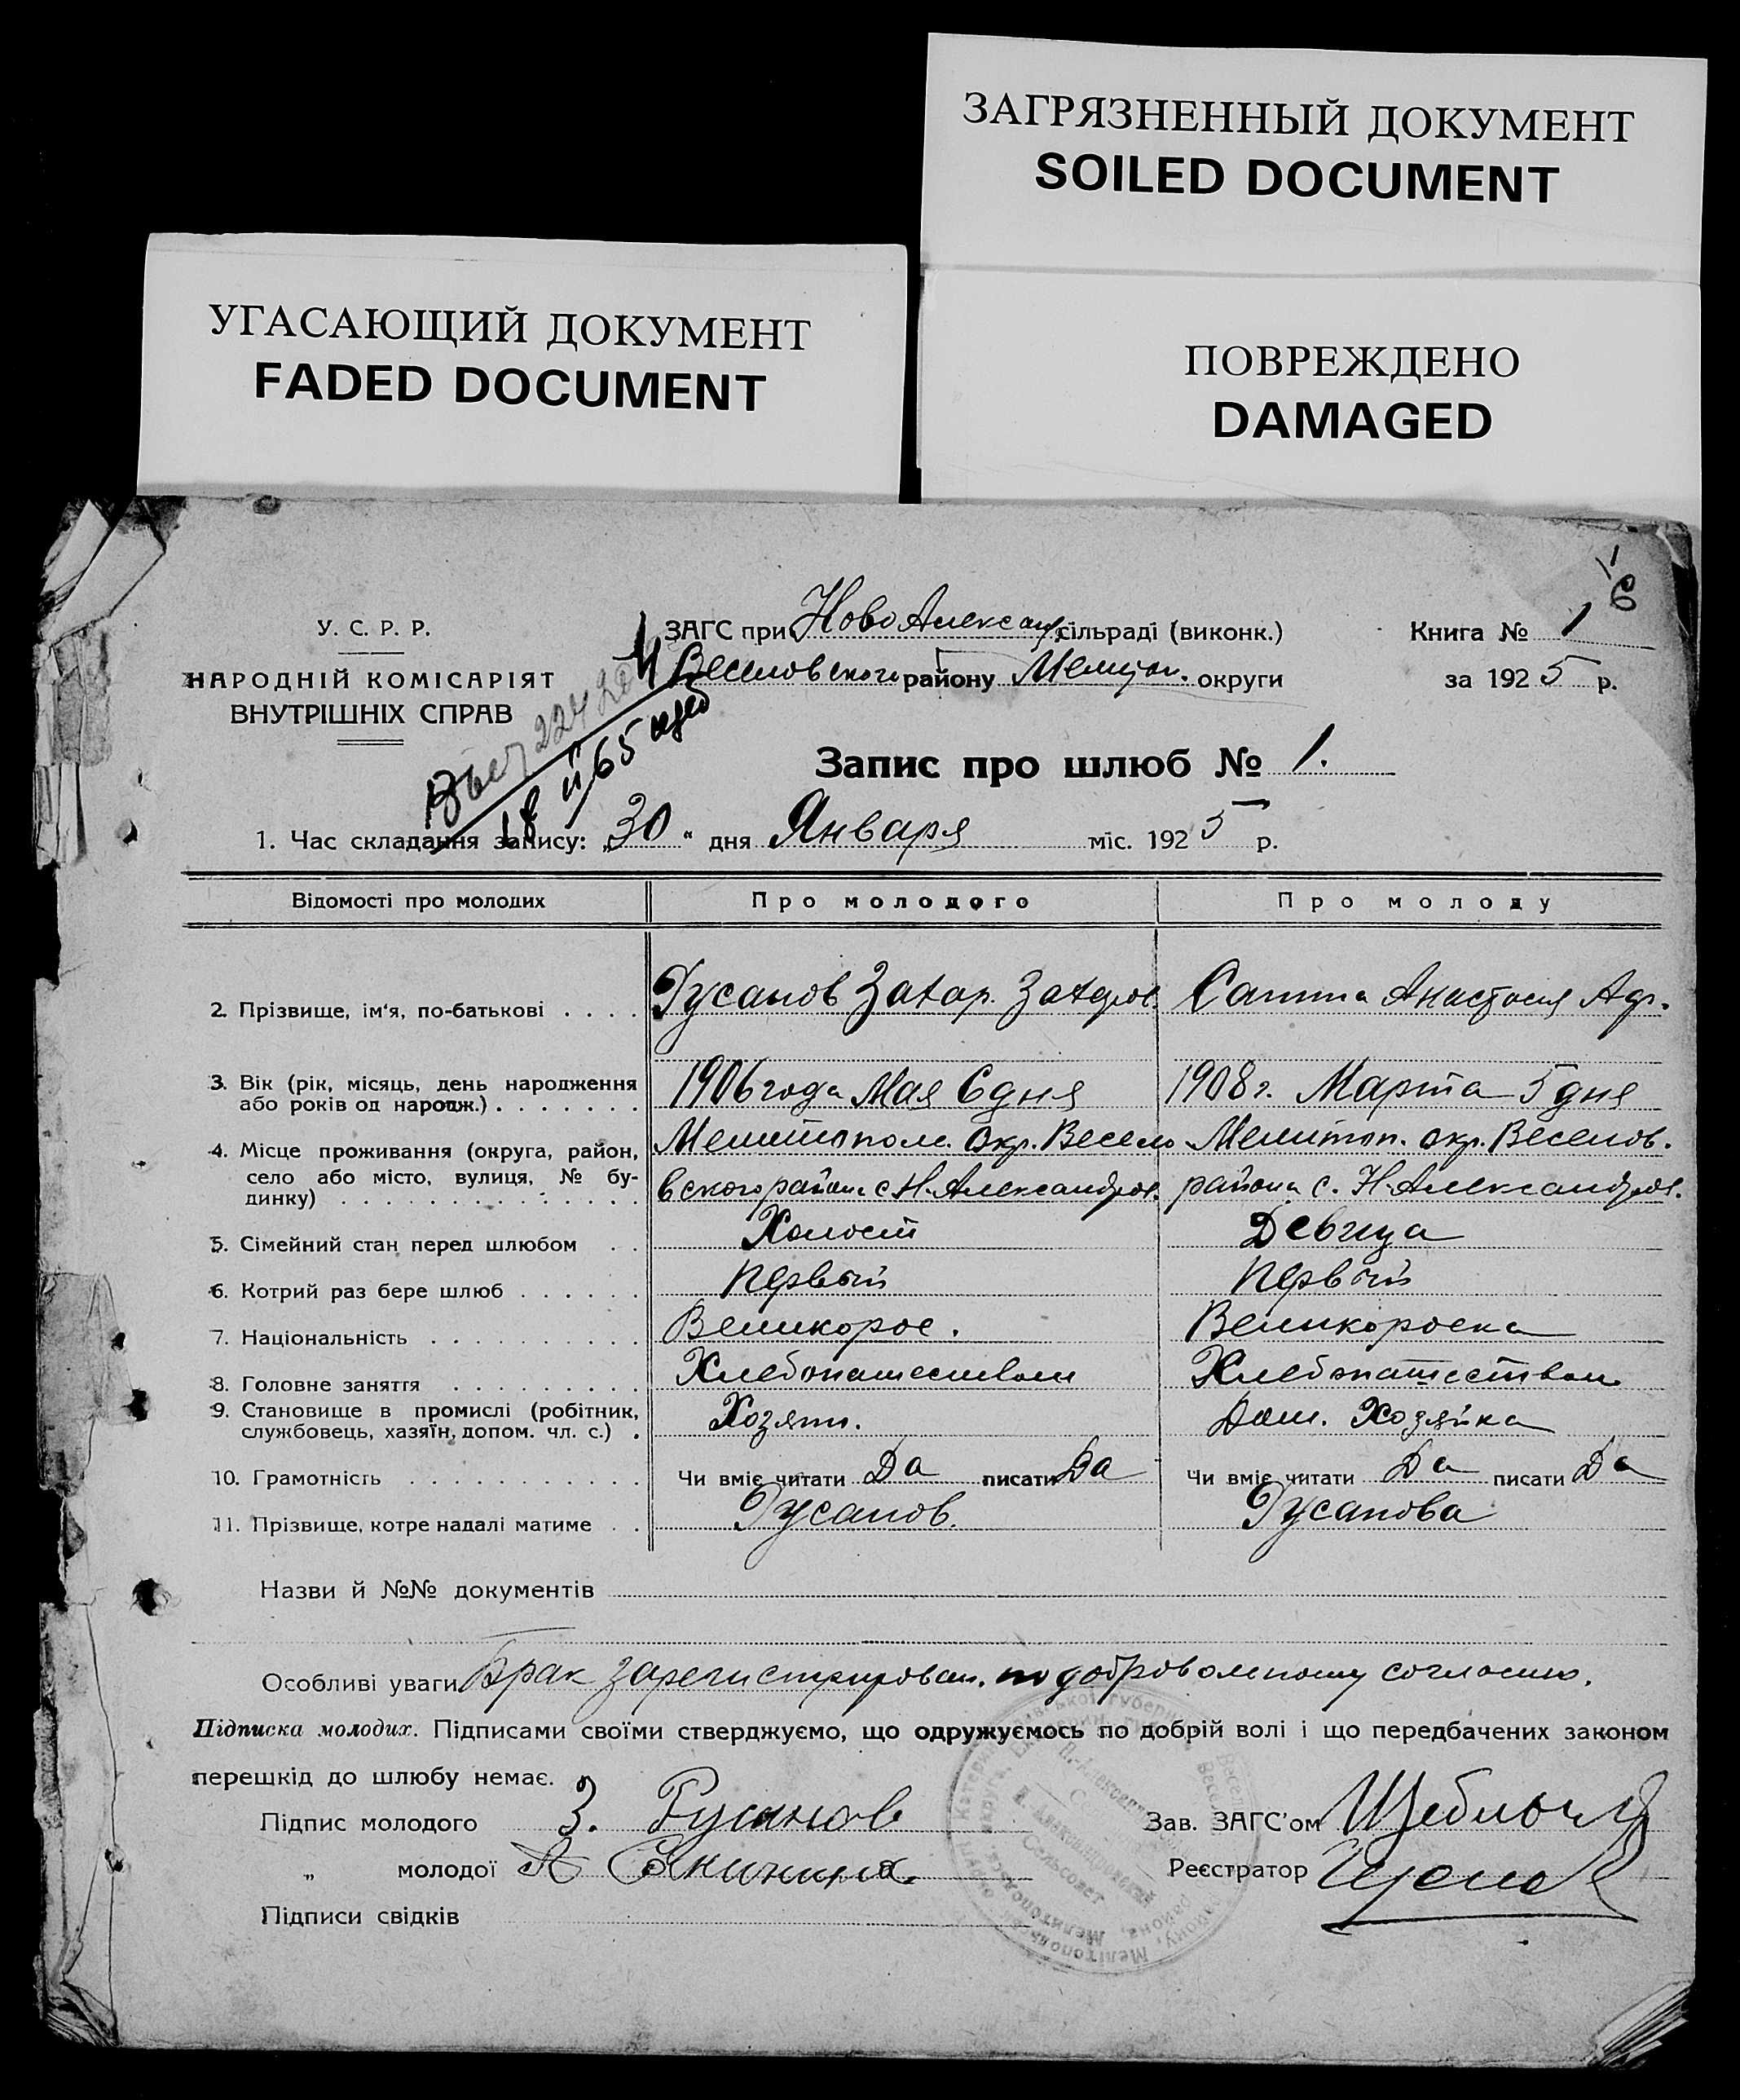 ЗАГРЯЗНЕННЫЙ ДОКУМЕНТ
SOILED DOCUMENT
УГАСАЮЩИЙ ДОКУМЕНТ
FADED DOCUMENT
ПОВРЕЖДЕНО
DAMAGED
У. С. Р. Р.
НАРОДНІЙ КОМІСАРІЯТ
ВНУТРІШНІХ СПРАВ
ЗАГС при Ново Александ сільраді (виконк.)
Веселовского району Мелитоп. округи
Книга № 1
за 1925 р.
6
Запис про шлюб № 1.
1. Час складання запису: „30“ дня Января міс. 1925 р.
Відомості про молодих Про молодого Про молоду
2. Прізвище, ім'я, по-батькові . . . . Русанов Захар. Захаров. Анастасия
3. Вік (рік, місяць, день народження 1906 года Мая 6 дня 1908 г. Марта 5 дня
або років од народж.) . . . . . . .
4. Місце проживання (округа, район, Мелитопол. окр. Весело Мелитоп. окр. Веселов.
село або місто, вулиця, № бу- вского района с Н-Александров. района с. Н-Александров.
динку) . . . . . . . . . . . . . .
5. Сімейний стан перед шлюбом . . Холост Девица
6. Котрий раз бере шлюб . . . . . . Первый Первый
7. Національність . . . . . . . . . . Великорос. Великороска
8. Головне заняття . . . . . . . . . Хлебопашеством Хлебопашеством
9. Становище в промислі (робітник, Хозяин. Дом. Хозяйка
службовець, хазяїн, допом. чл. с.) .
10. Грамотність . . . . . . . . . . . Чи вміє читати Да писати Да Чи вміє читати Да писати Да
11. Прізвище, котре надалі матиме . . Русанов. Русанова
Назви й №№ документів
Особливі уваги Брак зарегистрирован. по добровольному согласию.
Підписка молодих. Підписами своїми стверджуємо, що одружуємось по добрій волі і що передбачених законом
перешкід до шлюбу немає.
Підпис молодого З. Русанов Зав. ЗАГС'ом
„ молодої А Реєстратор
Підписи свідків